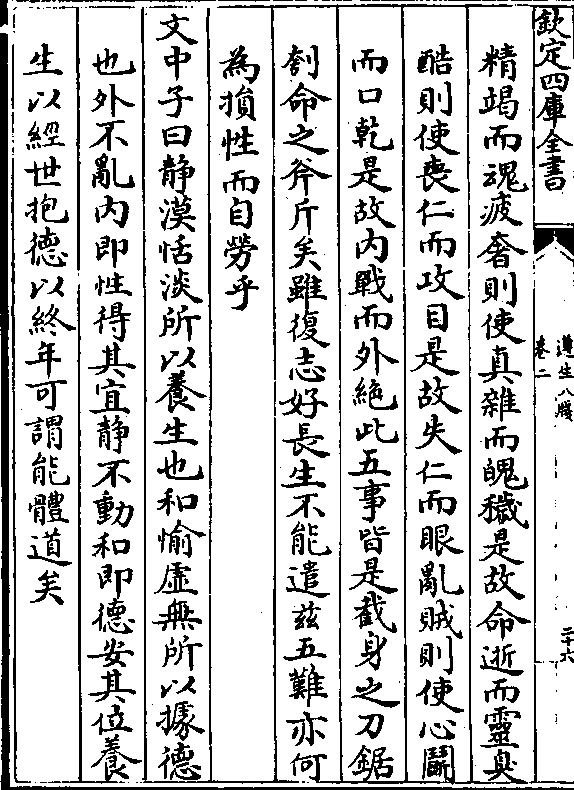 欽定四庫全書
遵生八牋
卷二
二十六
精竭而魂疲奢則使真雜而魄穢是故命逝而靈臭
酷則使喪仁而攻目是故失仁而眼亂賊則使心鬭
而口乾是故内戰而外絶此五事皆是截身之刀鋸
刳命之斧斤矣雖復志好長生不能遣茲五難亦何
為損性而自勞乎
文中子曰静漠恬淡所以養生也和愉虚無所以據德
也外不亂内即性得其宜静不動和即德安其位養
生以經世抱德以終年可謂能體道矣